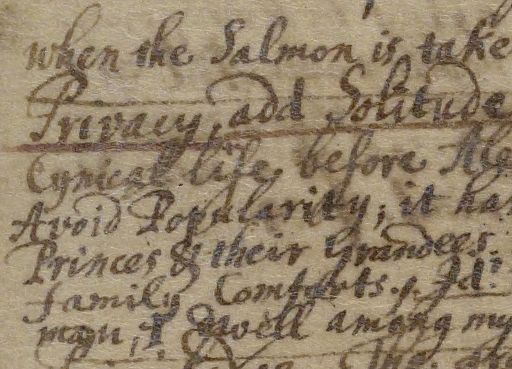 when the Salmon is take
Privacy, add Solitude
Cynical life before Ale
Avoid Popularity; it has
Princes & their Grandees.
family Comforts. Id:
man, I dwell among my